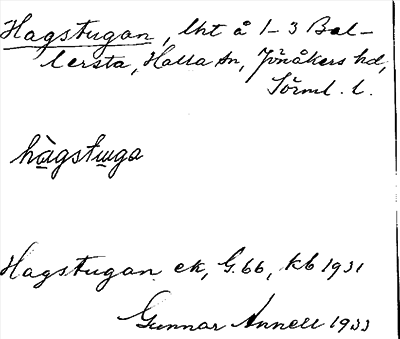 Hagstugan, lht å 1-3 Bal-
lersta, Halla sn, Jönåkers hd,
Södml. l.
hàgstuga
Hagstugan ek, G. 66, kb 1931
Gunnar Annell 1933